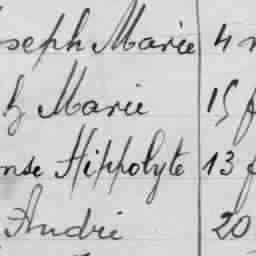 oseph Marie 4
h Marie 15 f
nse Hippolyte 13 f
André 20